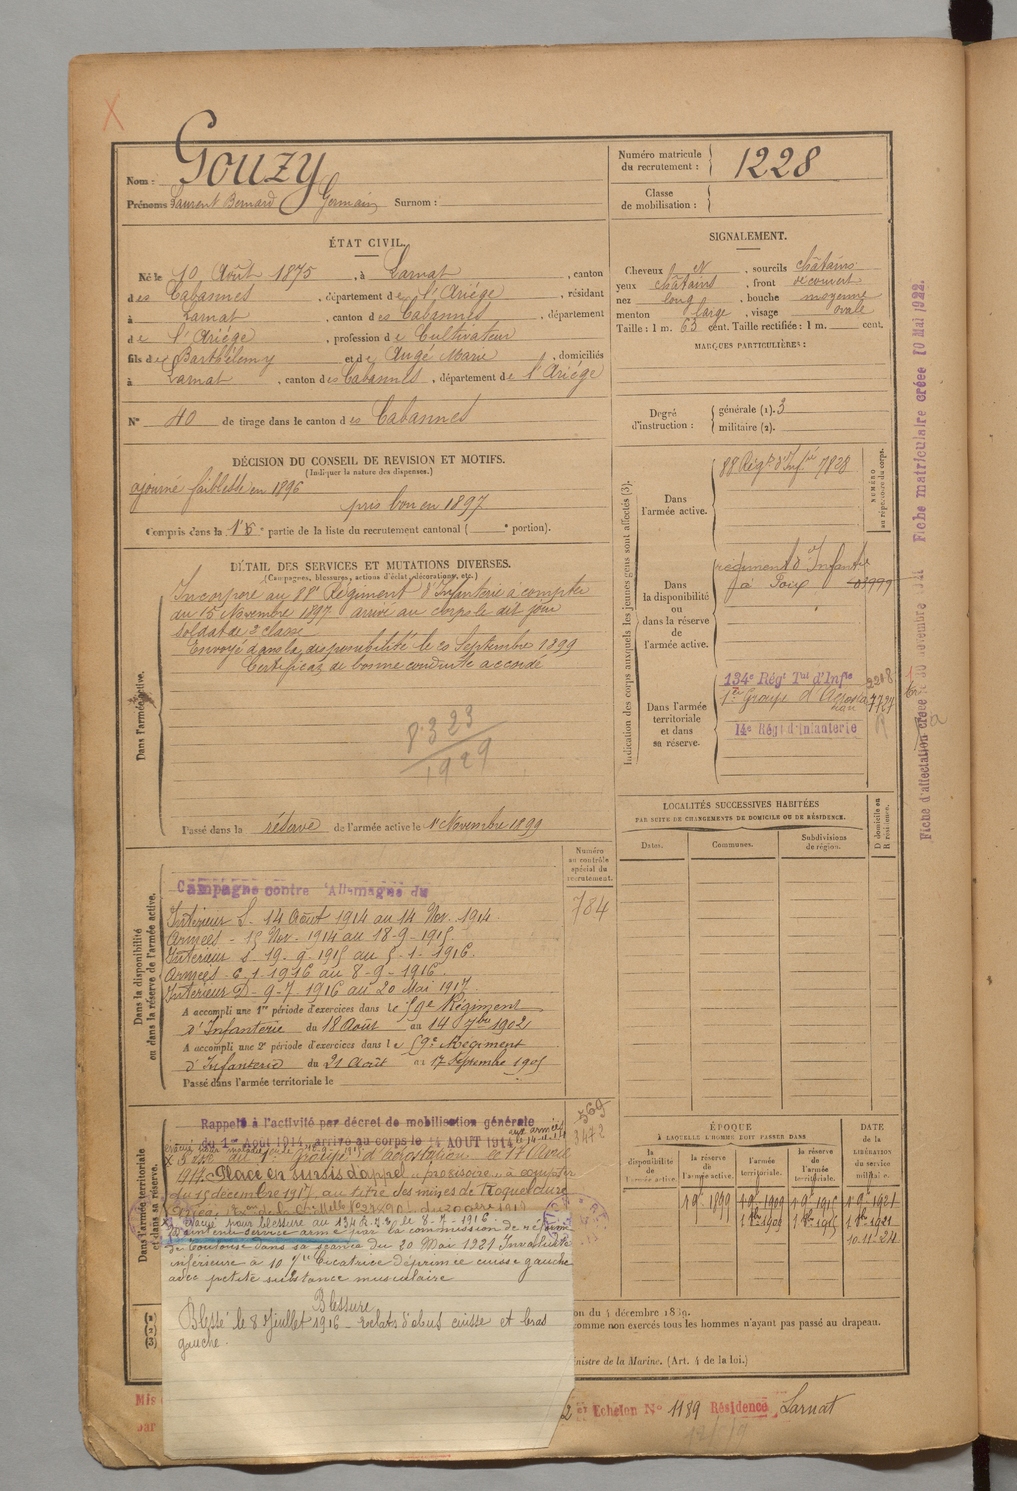 Nom : Gouzy
Prénoms Laurent Bernard Germain Surnom :
Numéro matricule du recrutement : 1228
Classe de mobilisation :
ÉTAT CIVIL.
Né le 10 Août 1875, à Larnat, canton
des Cabannes, département de l'Ariège, résidant
à Larnat, canton des Cabannes, département
de l'Ariège, profession de Cultivateur
fils de Barthélemy et de Augé Marie, domiciliés
à Larnat, canton des Cabannes, département de l'Ariège
N° 40 de tirage dans le canton des Cabannes
SIGNALEMENT.
Cheveux N, sourcils châtains
yeux châtains, front découvert
nez long, bouche moyenne
menton large, visage ovale
Taille : 1 m. 63 cent. Taille rectifiée : 1 m. cent.
MARQUES PARTICULIÈRES :
Degré d'instruction : générale (1). 3
militaire (2).
DÉCISION DU CONSEIL DE REVISION ET MOTIFS.
(Indiquer la nature des dispenses.)
ajourné faiblesse en 1896
pris bon en 1897
Compris dans la 1e partie de la liste du recrutement cantonal ( e portion).
DÉTAIL DES SERVICES ET MUTATIONS DIVERSES.
(Campagnes, blessures, actions d'éclat, décorations, etc.)
Dans l'armée active.
Incorporé au 88e Régiment d'Infanterie à compter
du 15 Novembre 1897 arrivé au corps le dit jour
soldat de 2e classe
Envoyé dans la disponibilité le 20 Septembre 1899
Certificat de bonne conduite accordé
8323
1929
Passé dans la réserve de l'armée active le 1er Novembre 1899
Indication des corps auxquels les jeunes gens sont affectés (3).
NUMÉRO au répertoire du corps.
Dans l'armée active.
88 Régt d'Infie 7828
Dans la disponibilité ou dans la réserve de l'armée active.
régiment d'Infantie
à Foix 03999
Dans l'armée territoriale et dans sa réserve.
134e Régt Tal d'Infie 2208
1er Groupe d'Aérostation 7727
14e Régt d'Infanterie
Fiche d'affectation créée 30 novembre 1921 Fiche matriculaire créée 10 Mai 1922.
LOCALITÉS SUCCESSIVES HABITÉES
PAR SUITE DE CHANGEMENTS DE DOMICILE OU DE RÉSIDENCE.
Dates. Communes. Subdivisions de région.
D domicile ou R résidence.
Numéro au contrôle spécial du recrutement.
784
Dans la disponibilité ou dans la réserve de l'armée active.
Campagne contre l'Allemagne du
Intérieur S. 14 Août 1914 au 14 Nov. 1914
Armées - 15 Nov. 1914 au 18-9-1915
Intérieur S. 19-9-1915 au 5-1-1916
Armées 6-1-1916 au 8-9-1916
Intérieur D. 9-7 1916 au 20 Mai 1917
A accompli une 1re période d'exercices dans le 59e Régiment
d'Infanterie du 18 Août au 14 7bre 1902
A accompli une 2e période d'exercices dans le 59e Régiment
d'Infanterie du 21 Août au 17 Septembre 1905
Passé dans l'armée territoriale le
Dans l'armée territoriale et dans sa réserve.
Rappelé à l'activité par décret de mobilisation générale
du 1er Août 1914, arrivé au corps le 14 AOUT 1914
1er groupe d'aérostation le 17 Avril
1917. Placé en sursis d'appel "provisoire" à compter
du 15 décembre 1917 au titre des mines de Roquelaure
569
3472
évacué pour blessure au 134 R.I. le 8-7-1916.
Maintenu service armé par la commission de réforme
de Toulouse dans sa séance du 20 Mai 1921 Invalidité
inférieure à 10 % Cicatrice déprimée cuisse gauche
avec petite substance musculaire
Blessure
Blessé le 8 Juillet 1916 - Eclats d'obus cuisse et bras
gauche.
ÉPOQUE
À LAQUELLE L'HOMME DOIT PASSER DANS
la disponibilité de l'armée active. la réserve de l'armée active. l'armée territoriale. la réserve de l'armée territoriale.
DATE de la LIBÉRATION du service militaire.
1 9e 1899 1 9e 1909 1 9e 1915 1 9e 1921
1 8bre 1909 1 8bre 1915 1 8bre 1921
10.11.24
on du 4 décembre 1889.
comme non exercés tous les hommes n'ayant pas passé au drapeau.
inistre de la Marine. (Art. 4 de la loi.)
Mis
par
2e Echelon N° 1189 Résidence Larnat